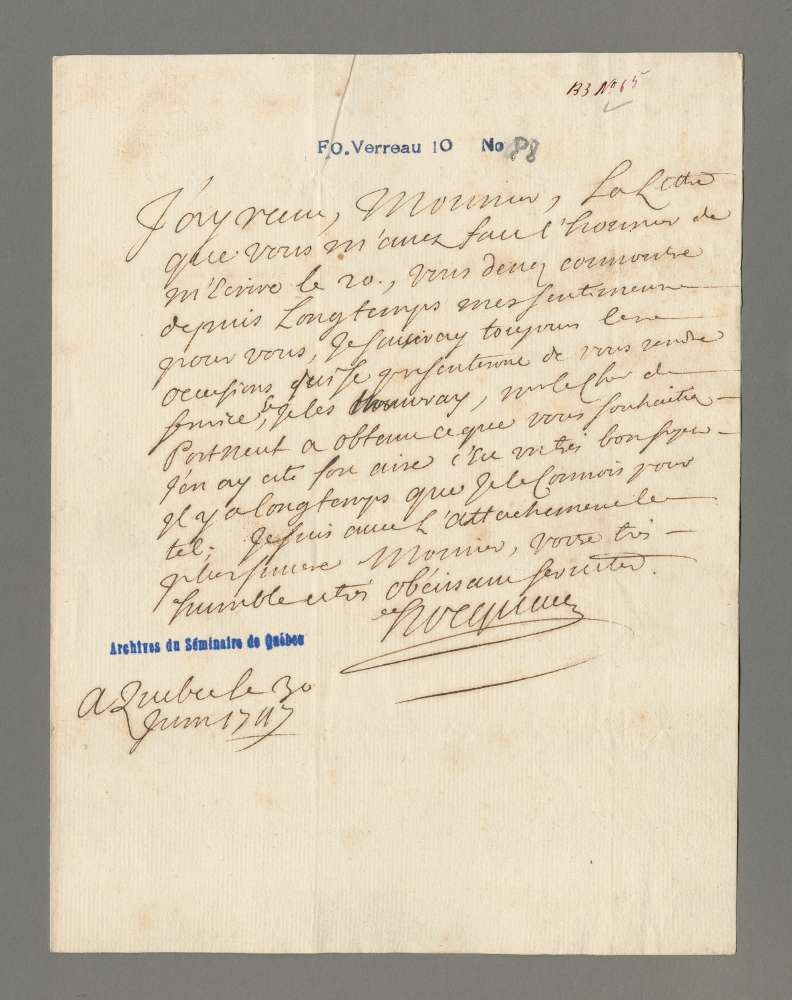 B3 No 65
FO. Verreau 10 No 88
J'ay receu, Monsieur, La Lettre
que vous m'avez fait l'honneur de
m'Ecrire le 20., vous devez connoitre
depuis Longtemps mes sentimens
pour vous, Je saisiray toujours les
occasions qui se presenteront de vous rendre
service, Je les , mr le Cher de
Portneuf a obtenu ce que vous souhaitiez
J'en ay eté fort aise c'Est un très bon sujet
Il y a longtemps que Je le Connois pour
tel; Je suis avec L'attachement le
plus sincere Monsieur, votre très
humble et très obéissant serviteur.
hocquart
Archives du Séminaire de Québec
A Quebec le 30
Juin 1747